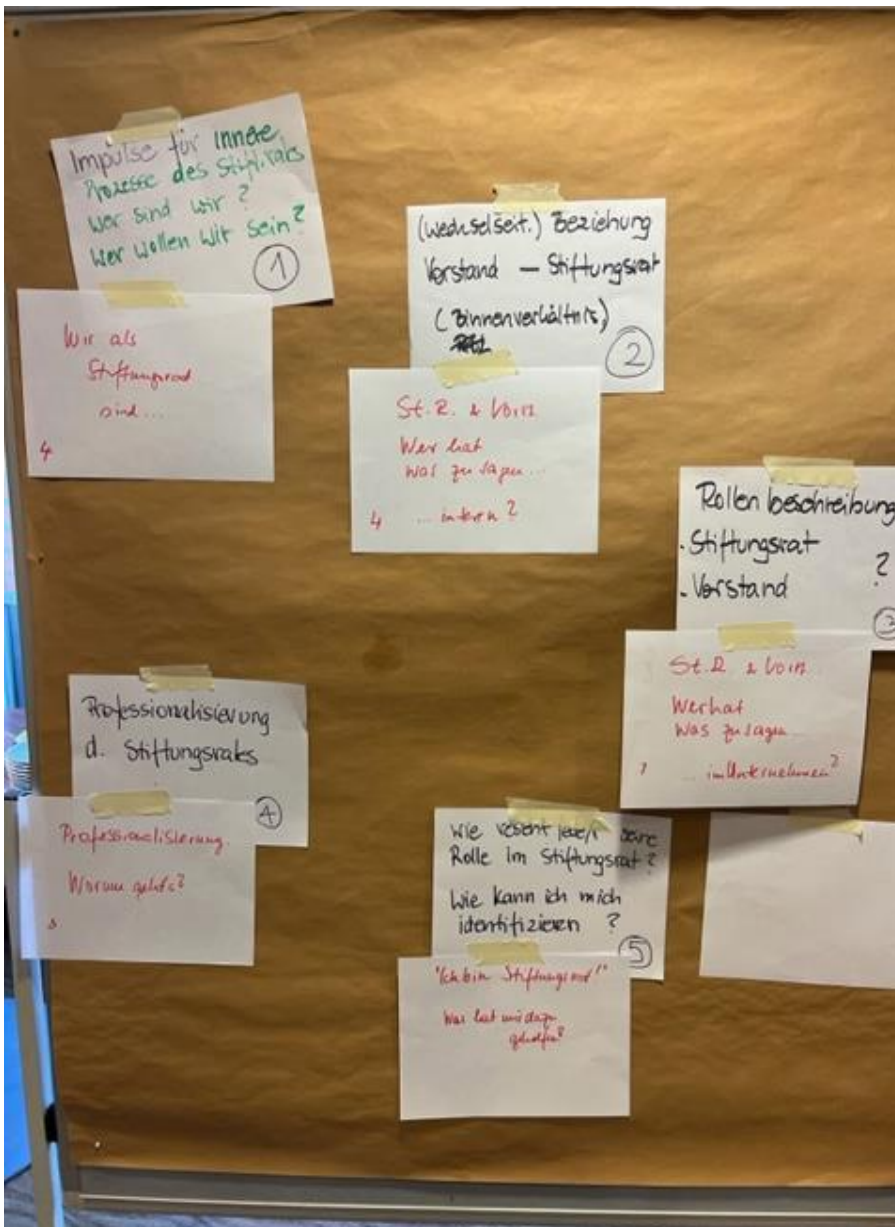 Impulse für innere
Prozesse des Stift.rates
Wer sind wir?
Wer wollen wir sein?
1
Wir als
Stiftungsrat
sind...
4
(wechselseit.) Beziehung
Vorstand – Stiftungsrat
(Binnenverhältnis)
2
St. R. &
Wer hat
was zu sagen...
... intern?
4
Rollenbeschreibung
. Stiftungsrat
. Vorstand ?
3
St. R &
Wer hat
Was zu sagen...
... im Unternehmen?
Professionalisierung
d. Stiftungsrates
4
Professionalisierung
Worum geht's?
Wie seine
Rolle im Stiftungsrat?
Wie kann ich mich
identifizieren ?
5
"Ich bin Stiftungsrat!"
Was hat mir dazu
geholfen?